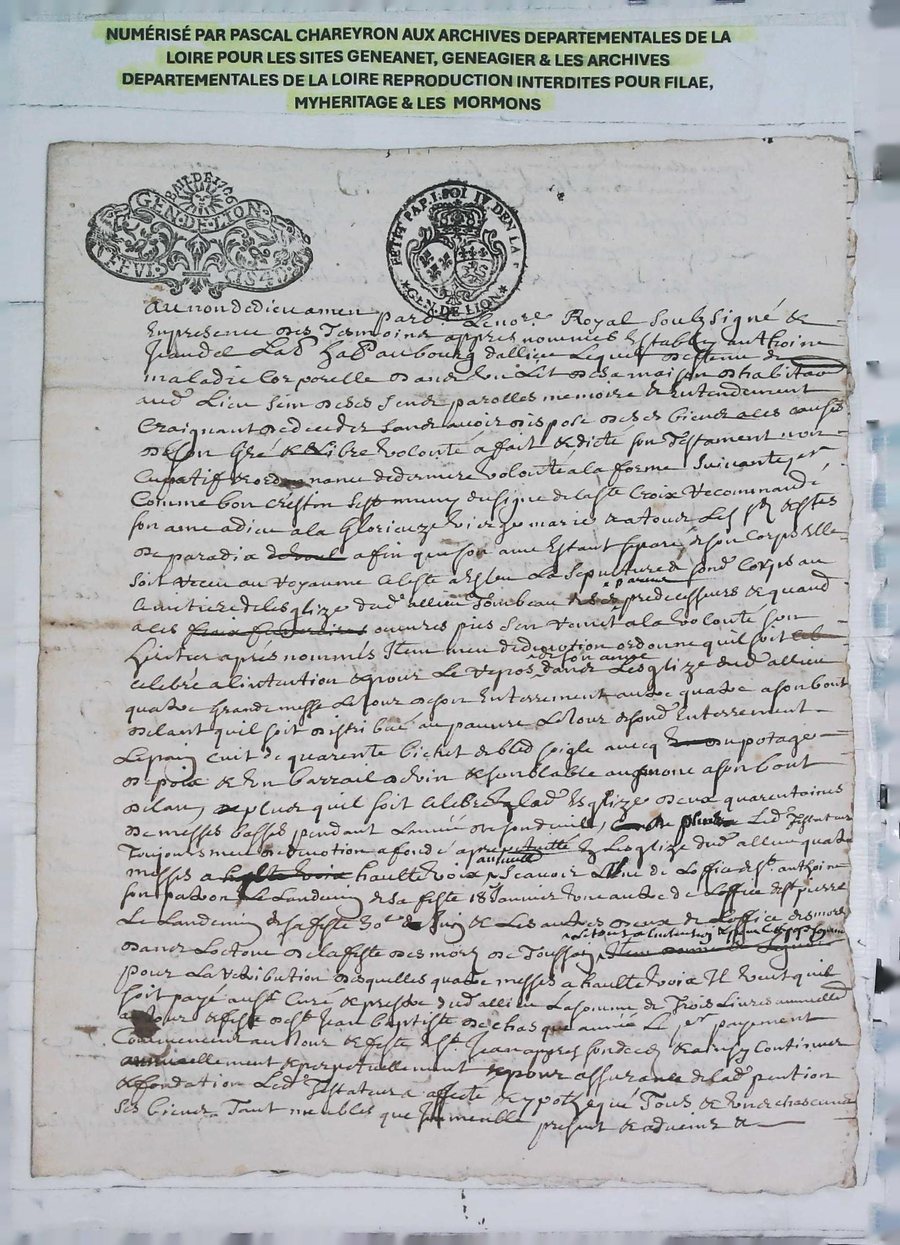 NUMÉRISÉ PAR PASCAL CHAREYRON AUX ARCHIVES DEPARTEMENTALES DE LA
LOIRE POUR LES SITES GENEANET, GENEAGIER & LES ARCHIVES
DEPARTEMENTALES DE LA LOIRE REPRODUCTION INTERDITES POUR FILAE,
MYHERITAGE & LES MORMONS
BAIL DE 1706
GEN·DE·LION
PETIT PAP
GEN·DE LION
au nom de dieu amen par Royal soubzsigné &
En presence des Tesmoins appres nommés Establi anthoine
dallieu lequel detenu de
maladie Corporelle dans son Lit de sa maison d'habitaon
aud Lieu sain de ses sens parolles memoire & Entendement
Craignant de deceder sans avoir dispose de ses biens a ces causes
de son Gré & Libre volonté a fait & dicté son Testament nun
Cupatif & ordonnance de derniere volonté a la forme suivante per
Comme bon crestien sest muny du signe de la ste Croix Recommandé
son ame a dieu a la Glorieuze vierge marie & a tous Les sts & stes
de paradis afin que son ame Estant separé de son Corps Elle
soit receu au Royaume celeste a Esleu La sepulture de sond Corps au
cimitiere de lesglize dud allieu Tombeau de ses predecesseurs & quand
a ces ouvres pies sen remet a la volonté son
heritier apres nommés Item meu de devotion ordonne quil soit
celebré a lintention & pour Le repos de son ame dans Lesglize dud allieu
quatre Grande messe Le Jour de son Enterrement autre quatre a son bout
de lant quil soit distribué au pauvre Le Jour de sond Enterrement
Le pain cuit de quarente bichet de bled soigle avecq du potage
de pois & un barrail de vin & semblable aumone a son bout
de lan, & plus quil soit celebré En lad Esglize deux quarentaines
de messes basses pendant Lannée de son deces, Led Testateur
Toujours meu de devotion a fondé a perpetuitté En Lesglize dud allieu quatre
messes a haulte voix annuelle scavoir Lune de Loffice de st anthoine
son patron Le Landemin de sa feste 18e Janvier une autre de Loffice de st pierre
Le Landemin de sa feste 30e Juin & Les autres deux de Loffice des mors
dans Loctave de la feste des mors de Toussaint
pour La retribution desquelles quatre messes a haulte voix Il veut quil
soit payé aux sr Curé & prestre dud allieu La somme de Trois Livres annuelle
au Jour & feste de st Jean baptiste de chasque année Le per payement
Commenceur au Jour & feste st Jean apres son deces & ainsy Continuer
annuellement & perpetuellement & pour assurance de lad pention
& fondation Led Testateur a affecté & ypothequé Tous & un chascuns
ses biens Tant meubles que Immeuble present & advenir &